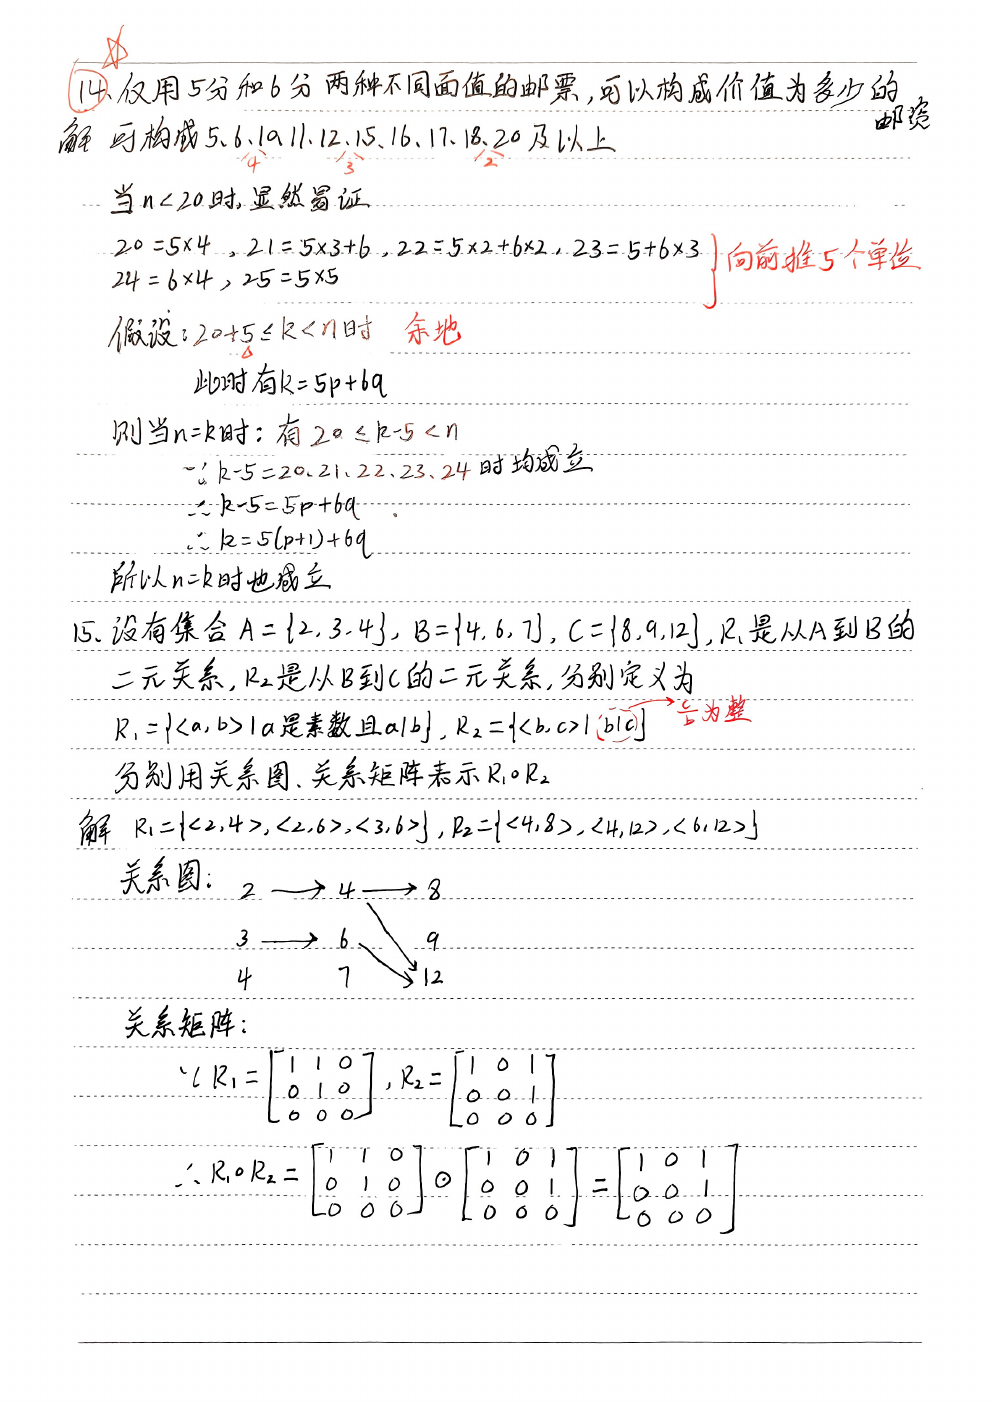 14、仅用5分和6分两种不同面值的邮票,可以构成价值为多少的邮资
解 可构成5、6、10、11、12、15、16、17、18、20及以上
4 3 2
当n<20时,显然易证
20=5×4 , 21=5×3+6 , 22=5×2+6×2 , 23=5+6×3
24=6×4 , 25=5×5
向前推5个单位
假设:20+5≤k<n时 余地
此时有k=5p+6q
则当n=k时: 有20≤k-5<n
∵k-5=20、21、22、23、24时均成立
∴k-5=5p+6q
∴k=5(p+1)+6q
所以n=k时也成立
15、设有集合A={2,3,4}, B={4,6,7}, C={8,9,12}, R₁是从A到B的
二元关系, R₂是从B到C的二元关系, 分别定义为
R₁={<a,b>|a是素数且a|b}, R₂={<b,c>|b|c} c/b为整
分别用关系图、关系矩阵表示R₁∘R₂
解 R₁={<2,4>,<2,6>,<3,6>}, R₂={<4,8>,<4,12>,<6,12>}
关系图:
2 → 4 → 8
3 → 6 9
4 7 12
关系矩阵:
∵R₁=[1 1 0
0 1 0
0 0 0], R₂=[1 0 1
0 0 1
0 0 0]
∴R₁∘R₂=[1 1 0
0 1 0
0 0 0]∘[1 0 1
0 0 1
0 0 0]=[1 0 1
0 0 1
0 0 0]